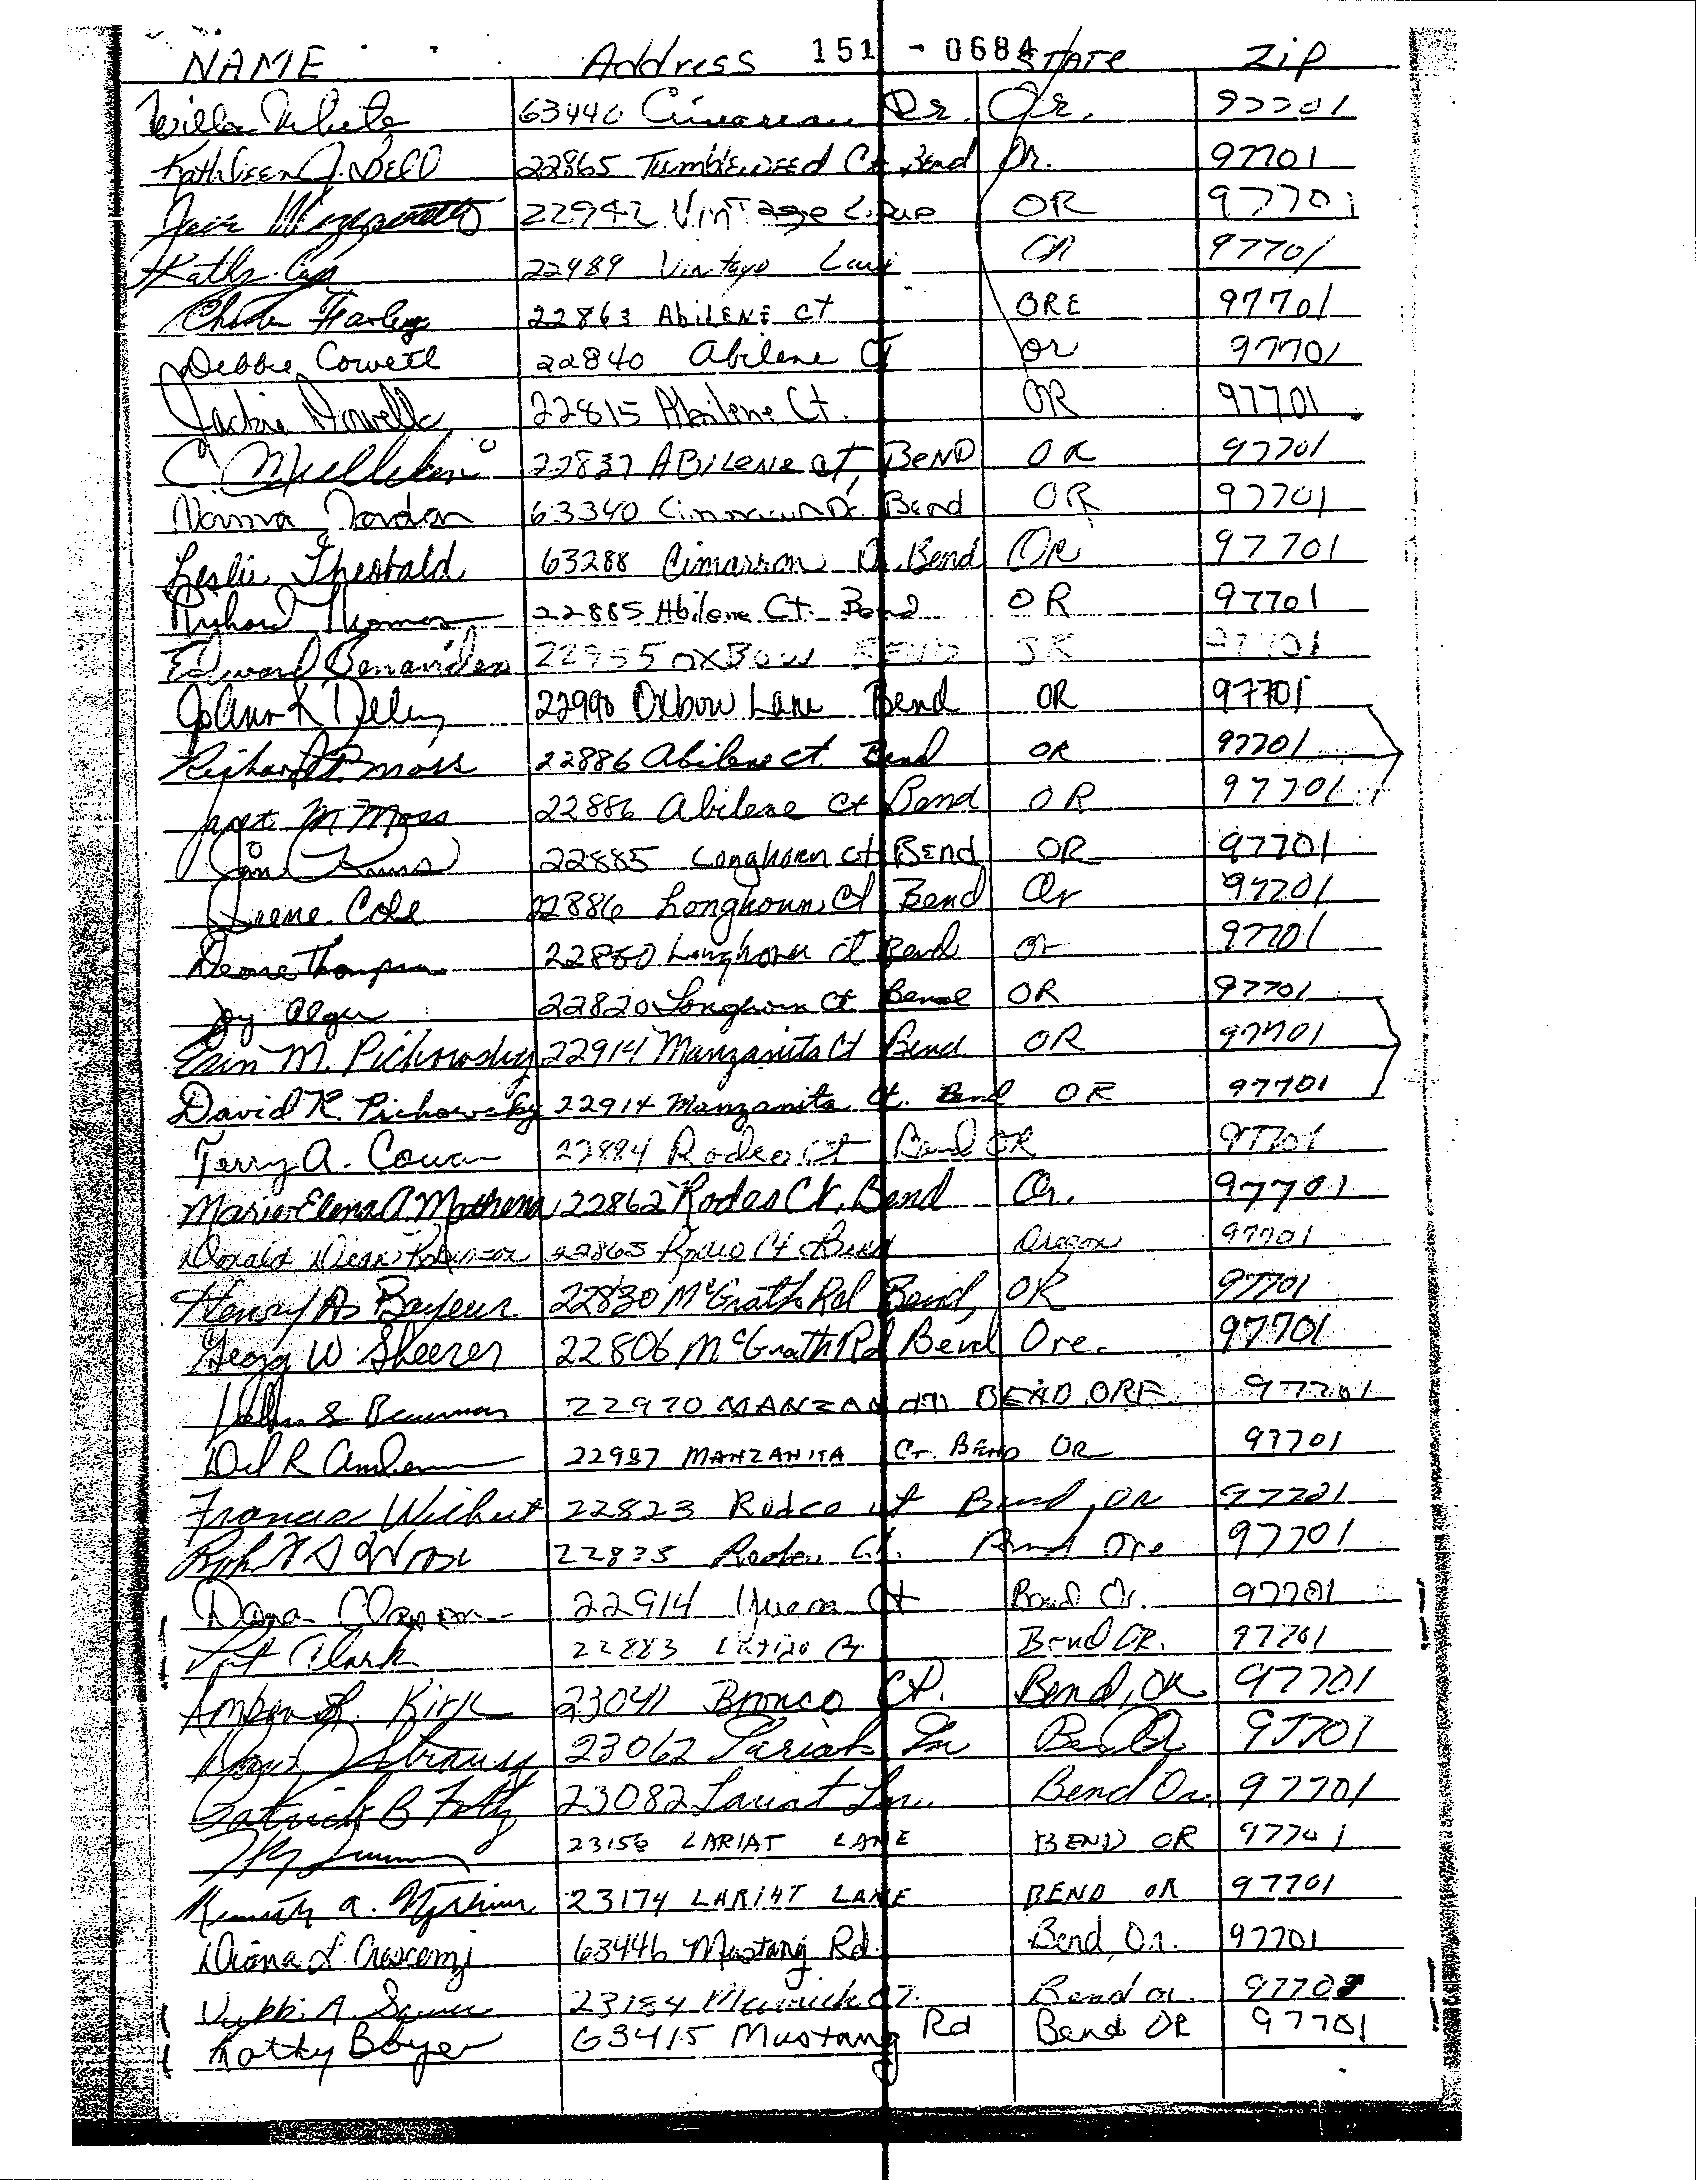 NAME Address 151 - 0684 STATE Zip
Willa White 63440 Dr. Or. 97701
Kathleen J. Bell 22865 Tumbleweed Ct Bend Or. 97701
22942 Vintage Lane OR 97701
Kathy 22989 Vintage Lane OR 97701
Farley 22863 Abilene ct ORE 97701
Debbie Cowell 22840 Abilene Ct or 97701
Jackie Howell 22815 Abilene Ct. OR 97701
C. 22837 ABilene ct, BeND OR 97701
Norma Jordan 63340 Dr. Bend OR 97701
Leslie Theobald 63288 Cimarron Dr. Bend OR 97701
Richard Thomas 22885 Abilene Ct. Bend OR 97701
Edward Benavidez 22955 OXBOW BEND OR 97701
JoAnn K 22990 Oxbow Lane Bend OR 97701
Richard P. Moss 22886 Abilene ct Bend OR 97701
Janet M Moss 22886 Abilene Ct Bend OR 97701
22885 Longhorn ct Bend OR 97701
Cole 22886 Longhorn Ct Bend Or 97701
Thompson 22850 Longhorn ct Bend Or 97701
Joy Alger 22820 Longhorn Ct Bend OR 97701
Erin M. Pichowsky 22914 Manzanita Ct Bend OR 97701
David R. Pichowsky 22914 Manzanita Ct. Bend OR 97701
Terry A. Cowan 22884 Rodeo Ct Bend OR 97701
Maria-Elena A. Mathena 22862 Rodeo Ct, Bend Or. 97701
Donald Dean Robinson 22865 Rodeo Ct Bend Oregon 97701
Henry A. 22830 McGrath Rd Bend, OR 97701
Gregg W. Sheerer 22806 McGrath Rd Bend Ore. 97701
22970 MANZANITA BEND ORE. 97701
22987 MANZANITA Ct. BEND OR 97701
Francis 22823 Rodeo ct Bend, OR 97701
22835 Rodeo Ct. Bend Ore 97701
Dana 22914 Ct Bend Or. 97701
Pat Clark 22883 Bend OR. 97701
Kirk 23041 Bronco Ct. Bend, OR 97701
Strauss 23062 Lariat Ln Bend Or 97701
Patrick B Foltz 23082 Lariat Ln. Bend Or. 97701
23156 LARIAT LANE BEND OR 97701
Kenneth A. 23174 LARIAT LANE BEND OR 97701
Diana L. Crescenzi 63446 Mustang Rd. Bend, Or. 97701
A. 23184 Maverick CT. Bend or. 97701
Kathy Boyer 63415 Mustang Rd Bend OR 97701